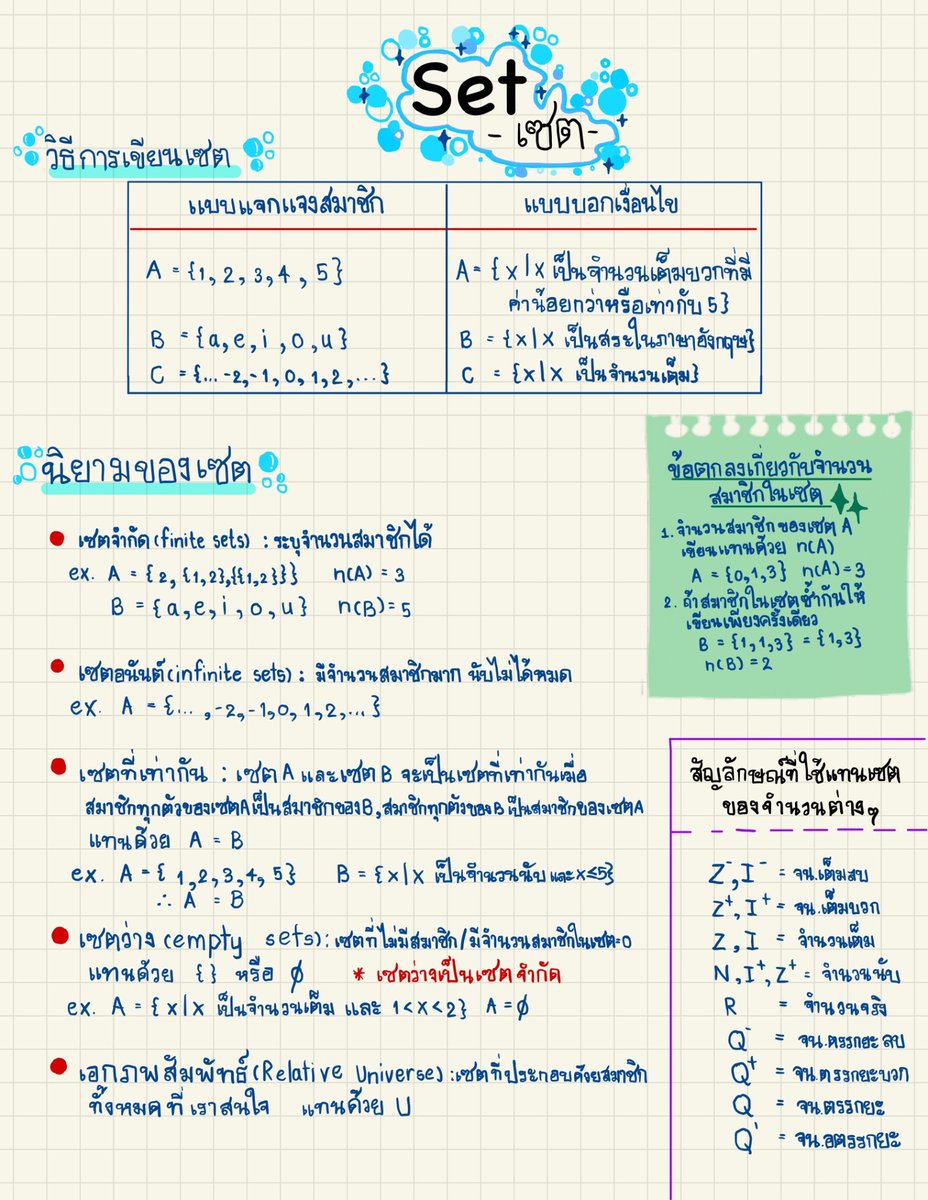 Set
- เซต -
วิธีการเขียนเซต
แบบแจกแจงสมาชิก
แบบบอกเงื่อนไข
A = {1, 2, 3, 4, 5}
A = {x|x เป็นจำนวนเต็มบวกที่มี
ค่าน้อยกว่าหรือเท่ากับ 5}
B = {a, e, i, o, u}
B = {x|x เป็นสระในภาษาอังกฤษ}
C = {... -2, -1, 0, 1, 2, ...}
C = {x|x เป็นจำนวนเต็ม}
นิยามของเซต
• เซตจำกัด (finite sets) : ระบุจำนวนสมาชิกได้
ex. A = {2, {1,2}, {{1,2}}} n(A) = 3
B = {a, e, i, o, u} n(B) = 5
• เซตอนันต์ (infinite sets) : มีจำนวนสมาชิกมาก นับไม่ได้หมด
ex. A = {..., -2, -1, 0, 1, 2, ...}
• เซตที่เท่ากัน : เซต A และเซต B จะเป็นเซตที่เท่ากันเมื่อ
สมาชิกทุกตัวของเซต A เป็นสมาชิกของ B, สมาชิกทุกตัวของ B เป็นสมาชิกของเซต A
แทนด้วย A = B
ex. A = {1, 2, 3, 4, 5} B = {x|x เป็นจำนวนนับ และ x≤5}
∴ A = B
• เซตว่าง (empty sets) : เซตที่ไม่มีสมาชิก / มีจำนวนสมาชิกในเซต=0
แทนด้วย {} หรือ ∅ * เซตว่างเป็นเซตจำกัด
ex. A = {x|x เป็นจำนวนเต็ม และ 1<x<2} A = ∅
• เอกภพสัมพัทธ์ (Relative Universe) : เซตที่ประกอบด้วยสมาชิก
ทั้งหมดที่เราสนใจ แทนด้วย U
ข้อตกลงเกี่ยวกับจำนวน
สมาชิกในเซต
1. จำนวนสมาชิกของเซต A
เขียนแทนด้วย n(A)
A = {0,1,3} n(A) = 3
2. ถ้าสมาชิกในเซตซ้ำกันให้
เขียนเพียงครั้งเดียว
B = {1,1,3} = {1,3}
n(B) = 2
สัญลักษณ์ที่ใช้แทนเซต
ของจำนวนต่างๆ
Z⁻, I⁻ = จน.เต็มลบ
Z⁺, I⁺ = จน.เต็มบวก
Z, I = จำนวนเต็ม
N, I⁺, Z⁺ = จำนวนนับ
R = จำนวนจริง
Q⁻ = จน.ตรรกยะลบ
Q⁺ = จน.ตรรกยะบวก
Q = จน.ตรรกยะ
Q' = จน.อตรรกยะ